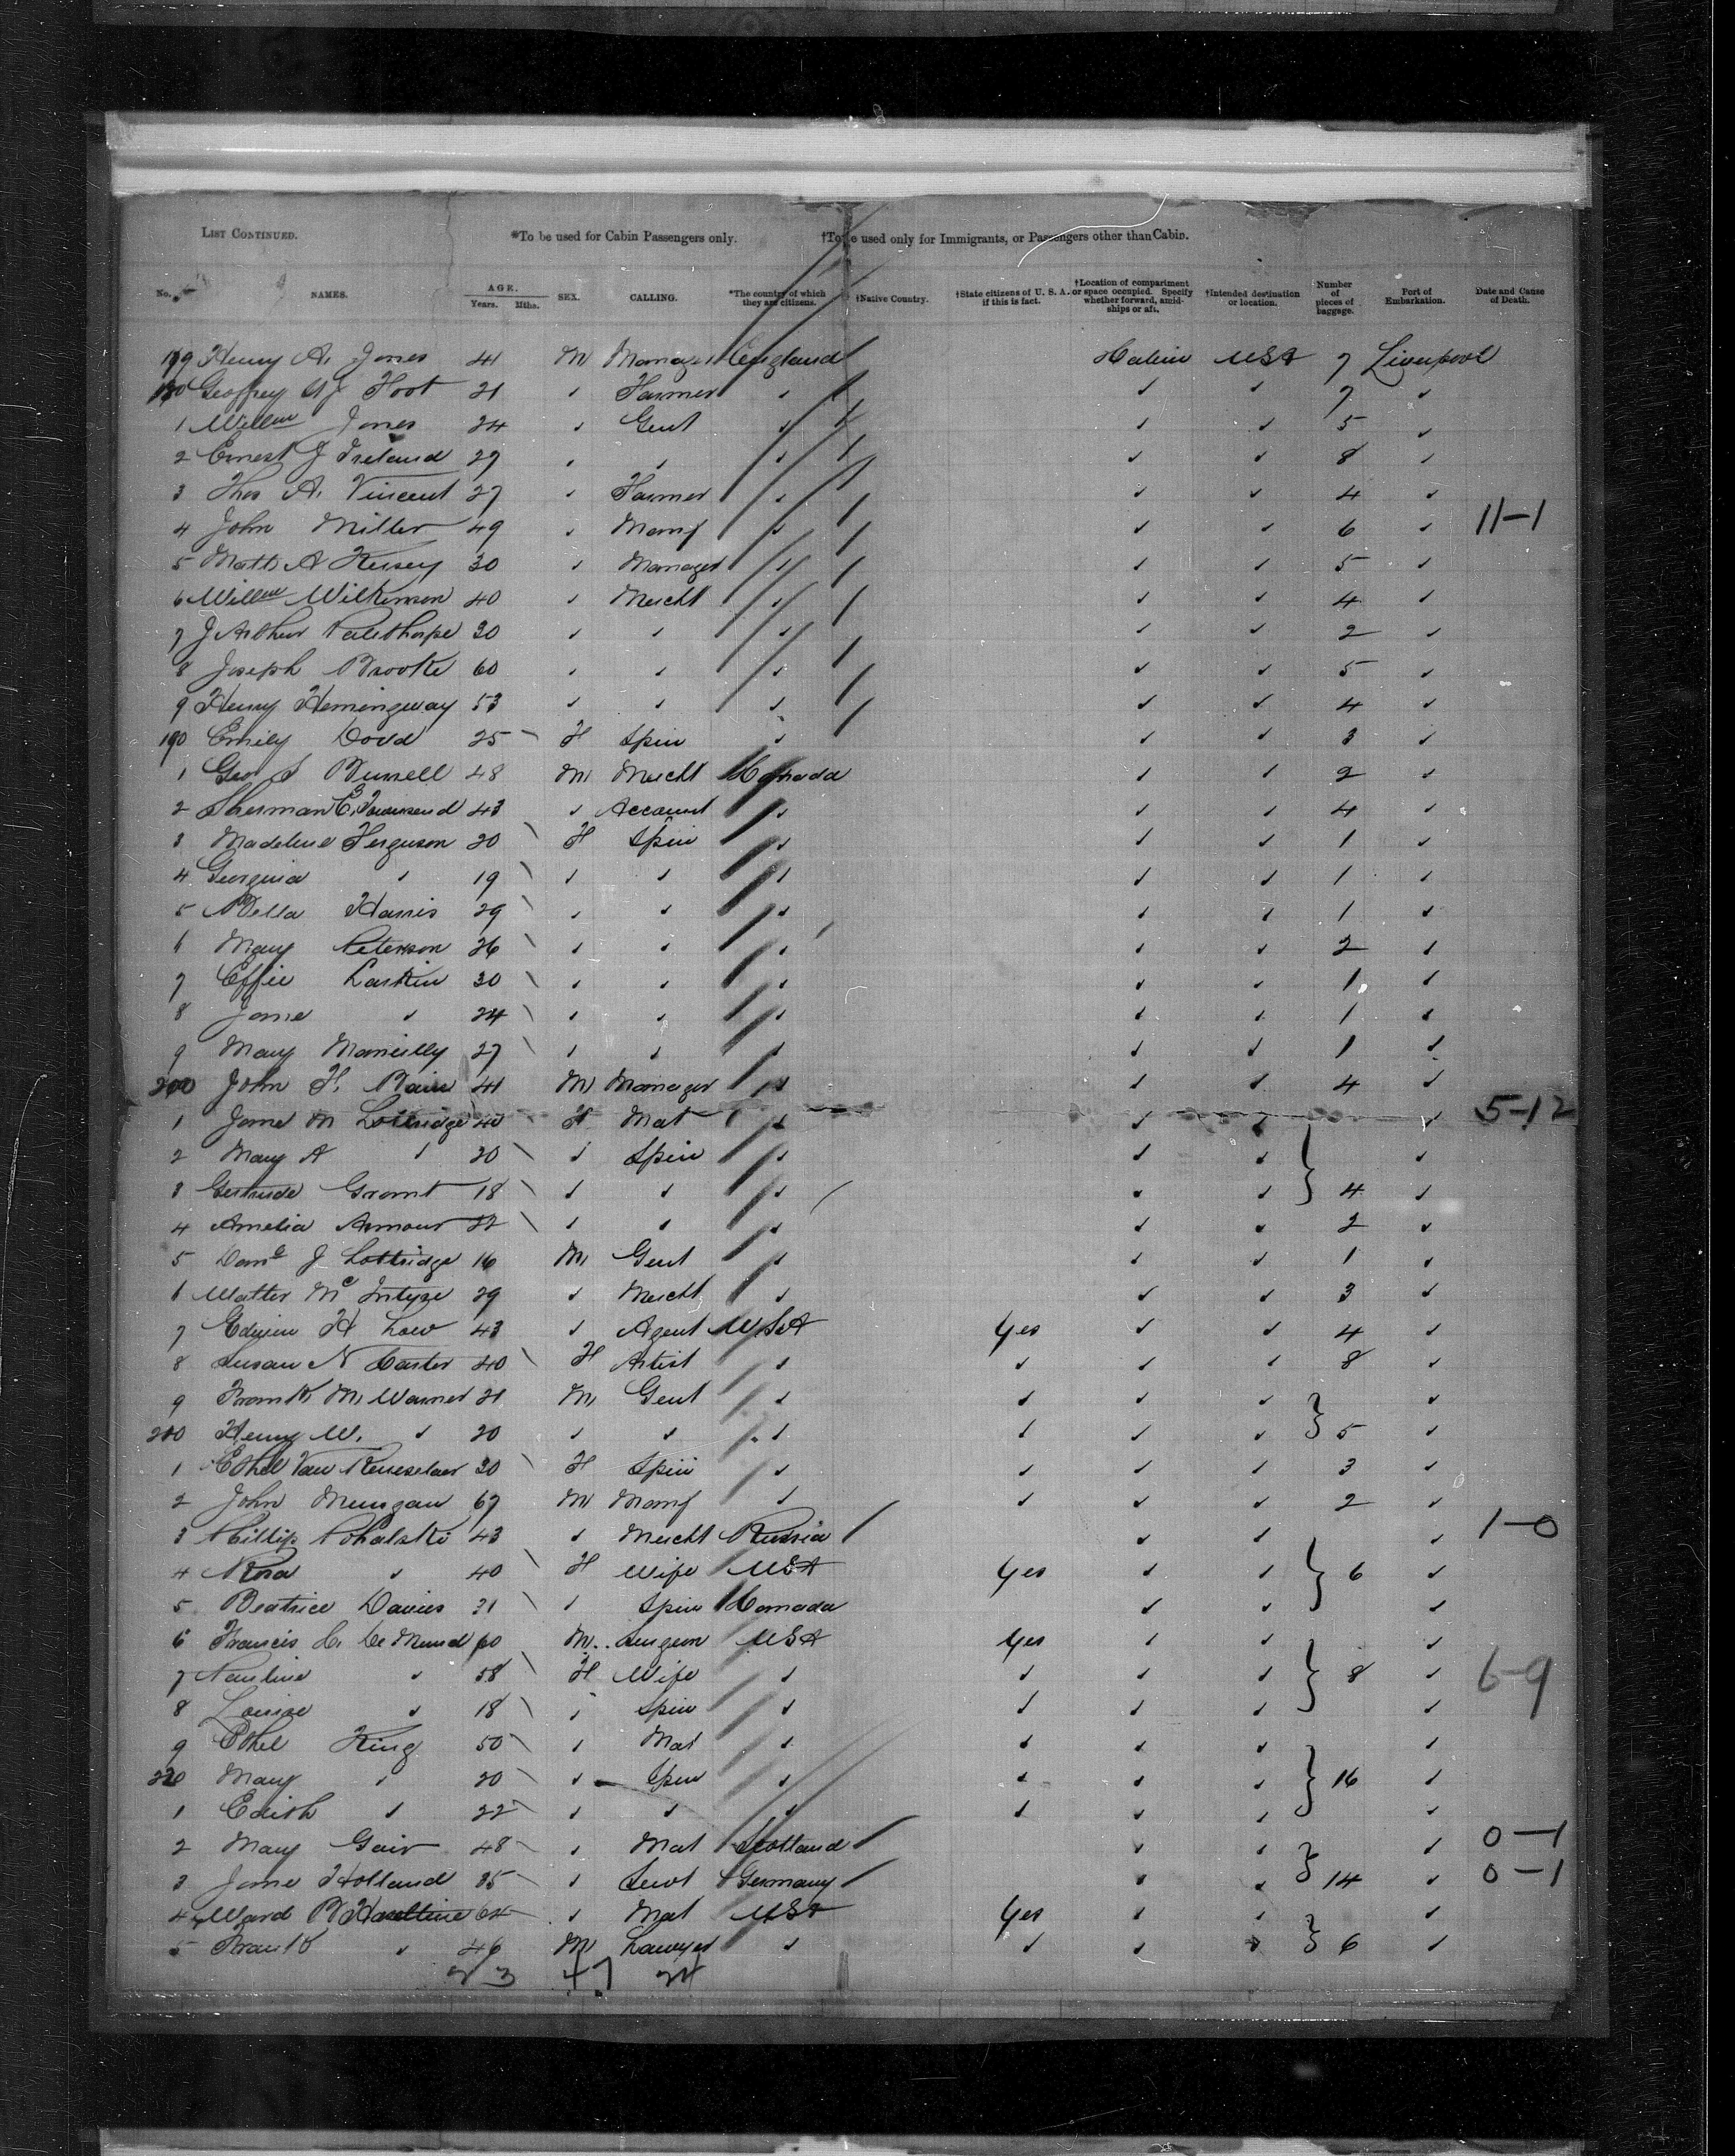 LIST CONTINUED. *To be used for Cabin Passengers only. †To be used only for Immigrants, or Passengers other than Cabin.
No. NAMES. AGE. Years. Mths. SEX. CALLING. *The country of which they are citizens. †Native Country. †State citizens of U. S. A. if this is fact. †Location of compartment or space occupied. Specify whether forward, amidships or aft. †Intended destination or location. Number of pieces of baggage. Port of Embarkation. Date and Cause of Death.
179 Henry A. Jones 41 M Manager England Cabin USA 7 Liverpool
180 Geoffrey Foot 21 ✓ Farmer ✓ ✓ ✓ 7 ✓
1 Willm Jones 24 ✓ Gent ✓ ✓ ✓ 5 ✓
2 Ernest J Ireland 29 ✓ ✓ ✓ ✓ ✓ 8 ✓
3 Thos A. Vincent 27 ✓ Farmer ✓ ✓ ✓ 4 ✓
4 John Miller 49 ✓ Manf ✓ ✓ ✓ 6 ✓ 11-1
5 Matth A Kersey 30 ✓ Manager ✓ ✓ ✓ 5 ✓
6 Willm Wilkinson 40 ✓ Mercht ✓ ✓ ✓ 4 ✓
7 J Arthur Palethorpe 30 ✓ ✓ ✓ ✓ ✓ 2 ✓
8 Joseph Brooke 60 ✓ ✓ ✓ ✓ ✓ 5 ✓
9 Henry Hemingway 53 ✓ ✓ ✓ ✓ ✓ 4 ✓
190 Emily Dodd 25 F Spin ✓ ✓ ✓ 3 ✓
1 Geo S Bussell 48 M Mercht Canada ✓ ✓ 2 ✓
2 Sherman E. Townsend 43 ✓ Account ✓ ✓ ✓ 4 ✓
3 Madeline Ferguson 20 F Spin ✓ ✓ ✓ 1 ✓
4 Georgina ✓ 19 ✓ ✓ ✓ ✓ ✓ 1 ✓
5 Bella Harris 29 ✓ ✓ ✓ ✓ ✓ 1 ✓
6 Mary Peterson 26 ✓ ✓ ✓ ✓ ✓ 2 ✓
7 Effie Laskin 30 ✓ ✓ ✓ ✓ ✓ 1 ✓
8 Jane ✓ 24 ✓ ✓ ✓ ✓ ✓ 1 ✓
9 Mary 27 ✓ ✓ ✓ ✓ ✓ 1 ✓
200 John F. Bain 41 M Manager ✓ ✓ ✓ 4 ✓
1 Jane M Lottridge 40 F Mat ✓ ✓ ✓ ✓ 5-12
2 Mary A ✓ 20 ✓ Spin ✓ ✓ ✓ ✓
3 Gertrude Grant 18 ✓ ✓ ✓ ✓ ✓ 4 ✓
4 Amelia Armour 22 ✓ ✓ ✓ ✓ ✓ 2 ✓
5 J Lottridge 16 M Gent ✓ ✓ ✓ 1 ✓
6 Walter Mc Intyre 29 ✓ Mercht ✓ ✓ ✓ 3 ✓
7 Edwin H Low 43 ✓ Agent USA Yes ✓ ✓ 4 ✓
8 Susan N Carter 40 F Artist ✓ ✓ ✓ ✓ 8 ✓
9 Frank M. Warner 21 M Gent ✓ ✓ ✓ ✓ ✓
210 Henry W. ✓ 20 ✓ ✓ ✓ ✓ ✓ ✓ 5 ✓
1 Ethel Van Rensselaer 30 F Spin ✓ ✓ ✓ ✓ 3 ✓
2 John 67 M Manf ✓ ✓ ✓ ✓ 2 ✓
3 Phillip Pohalski 43 ✓ Mercht Russia ✓ ✓ ✓ 1-0
4 Rosa ✓ 40 F Wife USA Yes ✓ ✓ 6 ✓
5 Beatrice Davies 31 ✓ Spin Canada ✓ ✓ ✓
6 Francis C. De Mund 60 M Surgeon USA Yes ✓ ✓ ✓
7 Pauline ✓ 58 F Wife ✓ ✓ ✓ ✓ 8 ✓ 6-9
8 Louise ✓ 18 ✓ Spin ✓ ✓ ✓ ✓ ✓
9 Ethel King 50 ✓ Mat ✓ ✓ ✓ ✓ ✓
220 Mary ✓ 20 ✓ Spin ✓ ✓ ✓ ✓ 16 ✓
1 Edith ✓ 22 ✓ ✓ ✓ ✓ ✓ ✓ ✓
2 Mary Gair 48 ✓ Mat Scotland ✓ ✓ ✓ 0-1
3 Jane Holland 35 ✓ Servt Germany ✓ ✓ 14 ✓ 0-1
4 Ward B Haseltine 64 ✓ Mat USA Yes ✓ ✓ ✓
5 Frank ✓ 46 M Lawyer ✓ ✓ ✓ ✓ 6 ✓
23 47 24